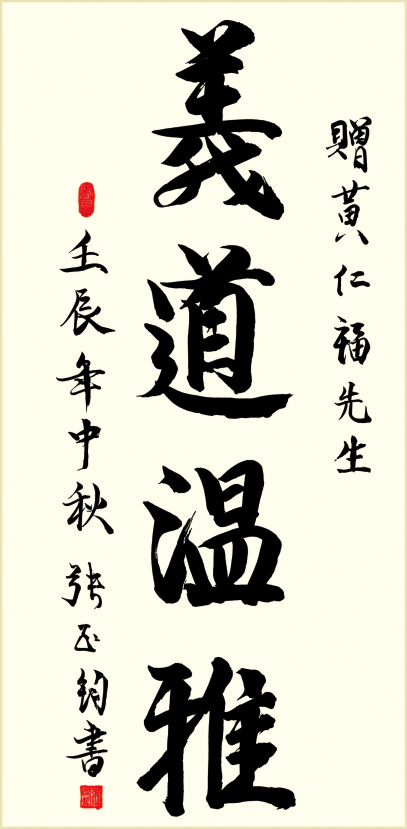 贈黃仁福先生
義道温雅
壬辰年中秋 張玉鈞書